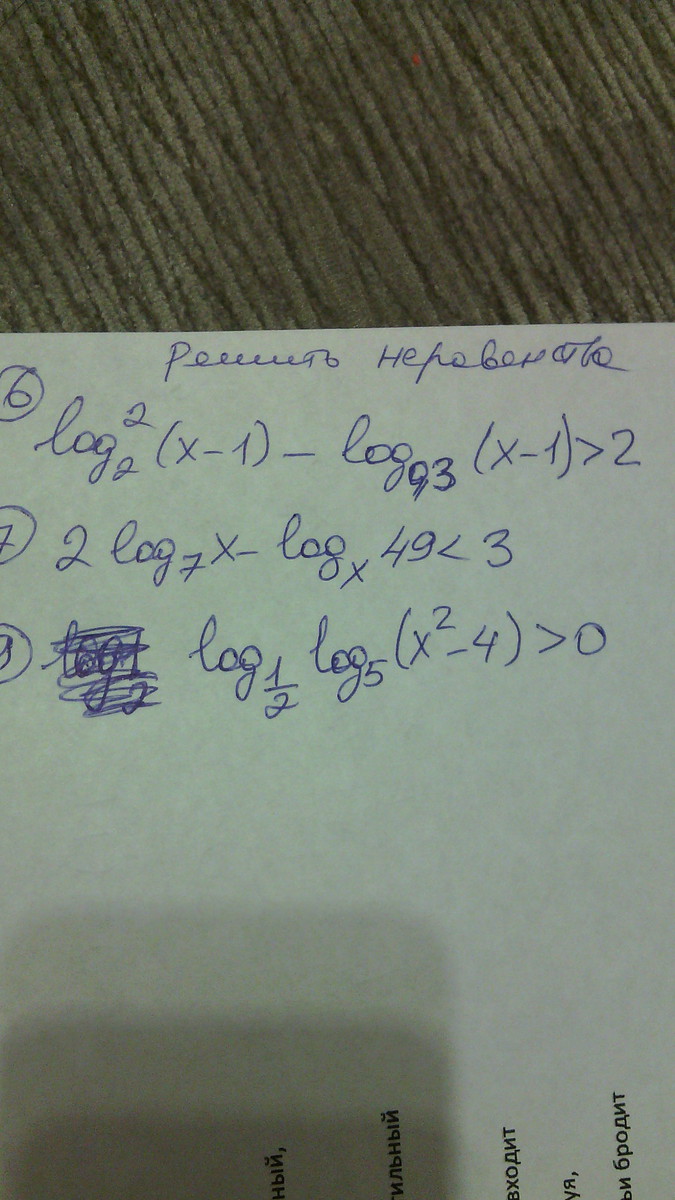 Решить неравенства
6 log₂²(x-1) - log₀,₃(x-1)>2
7 2 log₇x - logₓ49<3
log_{1/2} log₅(x²-4)>0
ный,
тильный
еходит
уя,
ви бродит